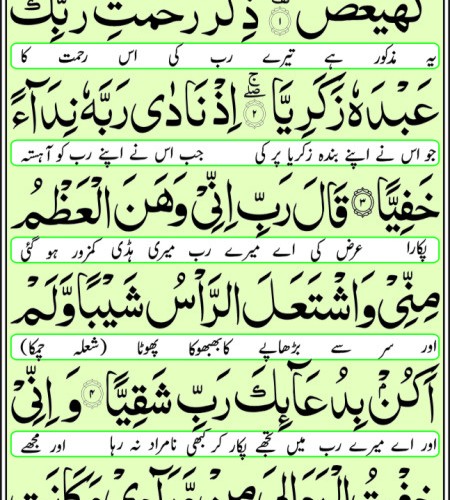 كٓهٰيٰعٓصٓ ۝١ ذِكْرُ رَحْمَتِ رَبِّكَ
یہ مذکور ہے تیرے رب کی اس رحمت کا
عَبْدَهٗ زَكَرِيَّا ۝٢ اِذْ نَادٰى رَبَّهٗ نِدَآءً
جو اس نے اپنے بندہ زکریا پر کی جب اس نے اپنے رب کو آہستہ
خَفِيًّا ۝٣ قَالَ رَبِّ اِنِّيْ وَهَنَ الْعَظْمُ
پکارا عرض کی اے میرے رب میری ہڈی کمزور ہو گئی
مِنِّيْ وَاشْتَعَلَ الرَّاْسُ شَيْبًا وَّلَمْ
اور سر سے بڑھاپے کا بھبھوکا پھوٹا (شعلہ چمکا)
اَكُنْۢ بِدُعَآئِكَ رَبِّ شَقِيًّا ۝٤ وَاِنِّيْ
اور اے میرے رب میں تجھے پکار کر کبھی نامراد نہ رہا اور مجھے
خِفْتُ الْمَوَالِيَ مِنْ وَّرَآءِيْ وَكَانَتِ